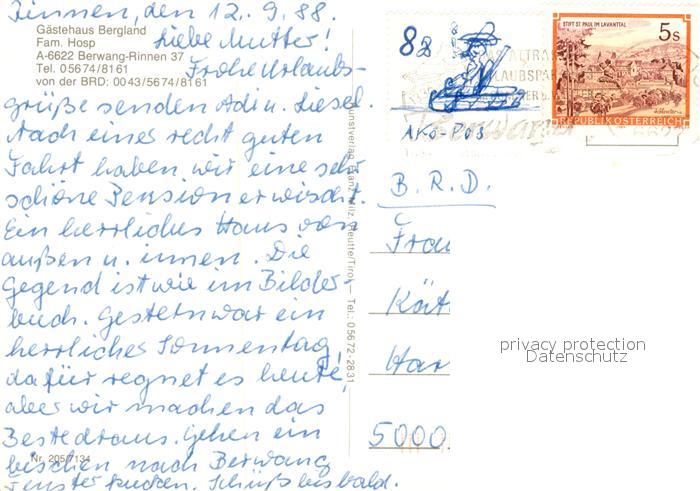 Rinnen, den 12. 9. 88.
Gästehaus Bergland
Fam. Hosp
A-6622 Berwang-Rinnen 37
Tel. 05674/8161
von der BRD: 0043/5674/8161
Liebe Mutter!
Frohe Urlaubs-
grüße senden Adi u. Liesel.
Nach einer recht guten
Fahrt haben wir eine sehr
schöne Pension erwischt.
Ein herrliches Haus von
außen u. innen. Die
Gegend ist wie im Bilder-
buch. Gestern war ein
herrlicher Sonnentag,
dafür regnet es heute,
aber wir machen das
Beste draus. Gehen ein
bischen nach Berwang
Fenster kucken. Schüß bis bald.
Nr. 205/7134
Kunstverlag Franz Milz, Reutte/Tirol - Tel.: 05672-2831
82
AKO-POS
STIFT ST. PAUL IM LAVANTTAL
5 S
REPUBLIK ÖSTERREICH
Berwang
B. R. D.
Frau
Kät
Har
5000
privacy protection
Datenschutz